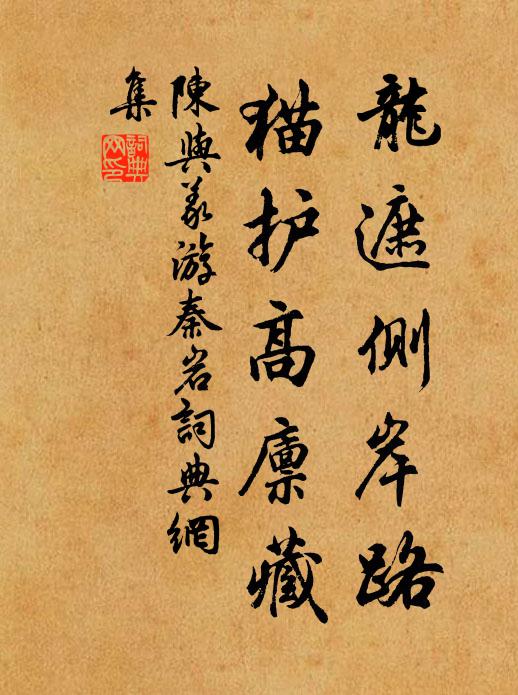 龍遮側岸路
猫护高廪藏
陳與義游秦岩詞典網
集
詞典網印